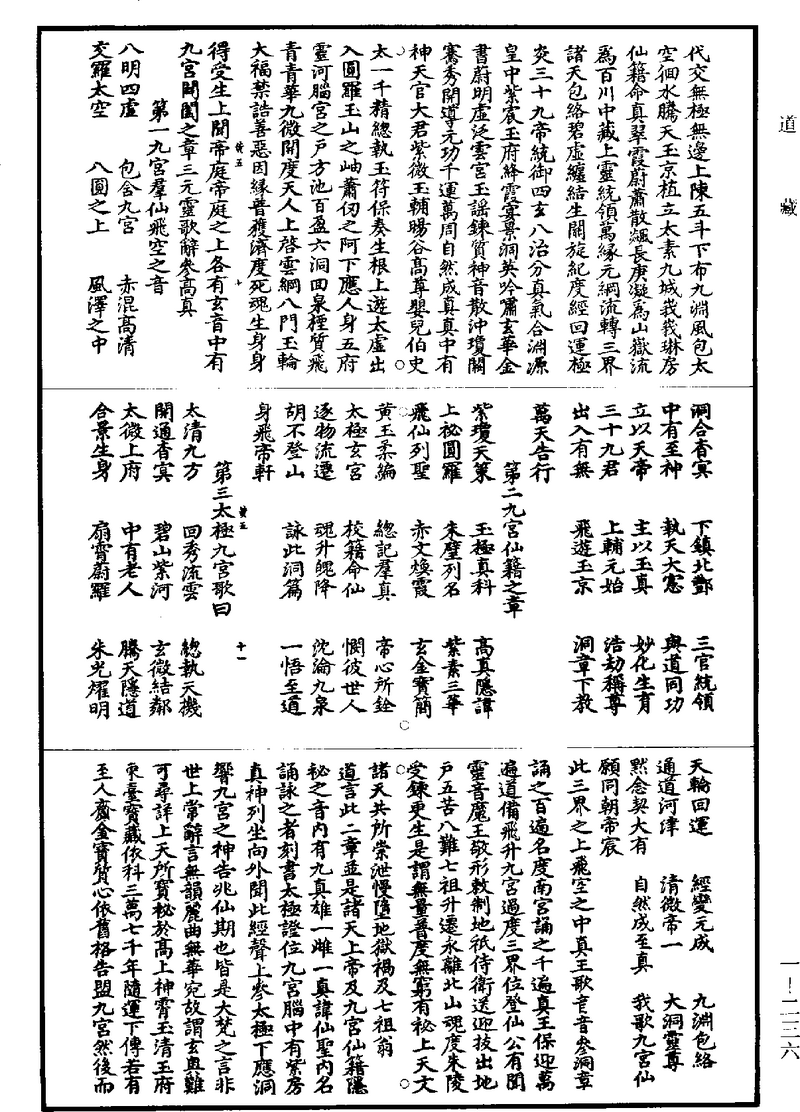 道藏
代交無極無邊上陳五斗下布九淵風包太
空徊水騰天玉京植立太素九城峩峩琳房
仙籍命真翠霞蔚蕭散颻長庚凝為山嶽流
為百川中藏上靈統領萬緣元綱流轉三界
諸天包絡碧虛纏結生關旋紀度經回運極
炎三十九帝統御四玄八治分真氣合淵源
皇中紫宸玉府絳霞宴景洞英吟嘯玄華金
書蔚明虛泛雲宮玉謡鍊質神音散沖瓊闕
騫秀開導元功千運萬周自然成真真中有
神天官大君紫微玉輔暘谷高尊嬰兒伯史
太一千精總執玉符保奏生根上遊太虛出
入圓羅玉山之岫蕭仞之阿下應人身五府
靈河腦宮之戶方池百盈六洞回泉極質飛
青青華九微開度天人上啓雲綱八門玉輪
大福禁誥善惡因緣普獲濟度死魂生身身
得受生上聞帝庭帝庭之上各有玄音中有
九宮開闔之章三元靈歌辭參高真
第一九宮羣仙飛空之音
八明四虛 包含九宮 赤混高清
交羅太空 八圓之上 風澤之中
洞合杳冥 下鎮北酆 三官統領
中有至神 執天大憲 與道同功
立以天帝 主以玉真 妙化生育
三十九君 上輔元始 浩劫稱尊
出入有無 飛遊玉京 洞章下教
萬天告行
第二九宮仙籍之章
紫瓊天策 玉極真科 高真隱諱
上祕圓羅 朱壁列名 紫素三華
飛仙列聖 赤文煥霞 玄金寶簡
黃玉柔編 總記羣真 帝心所銓
太極玄宮 校籍命仙 憫彼世人
逐物流遷 魂升魄降 沈淪九泉
胡不登山 詠此洞篇 一悟至道
身飛帝軒
第三太極九宮歌曰
太清九方 回秀流雲 總執天機
開通杳冥 碧山紫河 玄微結鄰
太微上府 中有老人 騰天隱道
合景生身 扇霄蔚羅 朱光耀明
天輪回運 經變元成 九淵包絡
通道河津 清微帝一 大洞靈尊
黙念契大有 自然成至真 我歌九宮仙
願同朝帝宸
此三界之上飛空之中真王歌音音參洞章
誦之百遍名度南宮誦之千遍真王保迎萬
遍道備飛升九宮過度三界位登仙公有聞
靈音魔王敬形敕制地祇侍衛送迎拔出地
戶五苦八難七祖升遷永離北山魂度朱陵
受鍊更生是謂無量普度無窮有祕上天文
諸天共所崇泄慢墮地獄禍及七祖翁
道言此二章並是諸天上帝及九宮仙籍隱
祕之音內有九真雄一雌一真諱仙聖內名
誦詠之者刻書太極證位九宮腦中有紫房
真神列坐向外聞此經聲上參太極下應洞
響九宮之神告兆仙期也皆是大梵之言非
世上常辭言無韻麗曲無華宛故謂玄奧難
可尋詳上天所寶秘於高上神霄玉清王府
東臺寶藏依科三萬七千年隨運下傳若有
至人齎金寶質心依舊格告盟九宮然後而
一-二三六